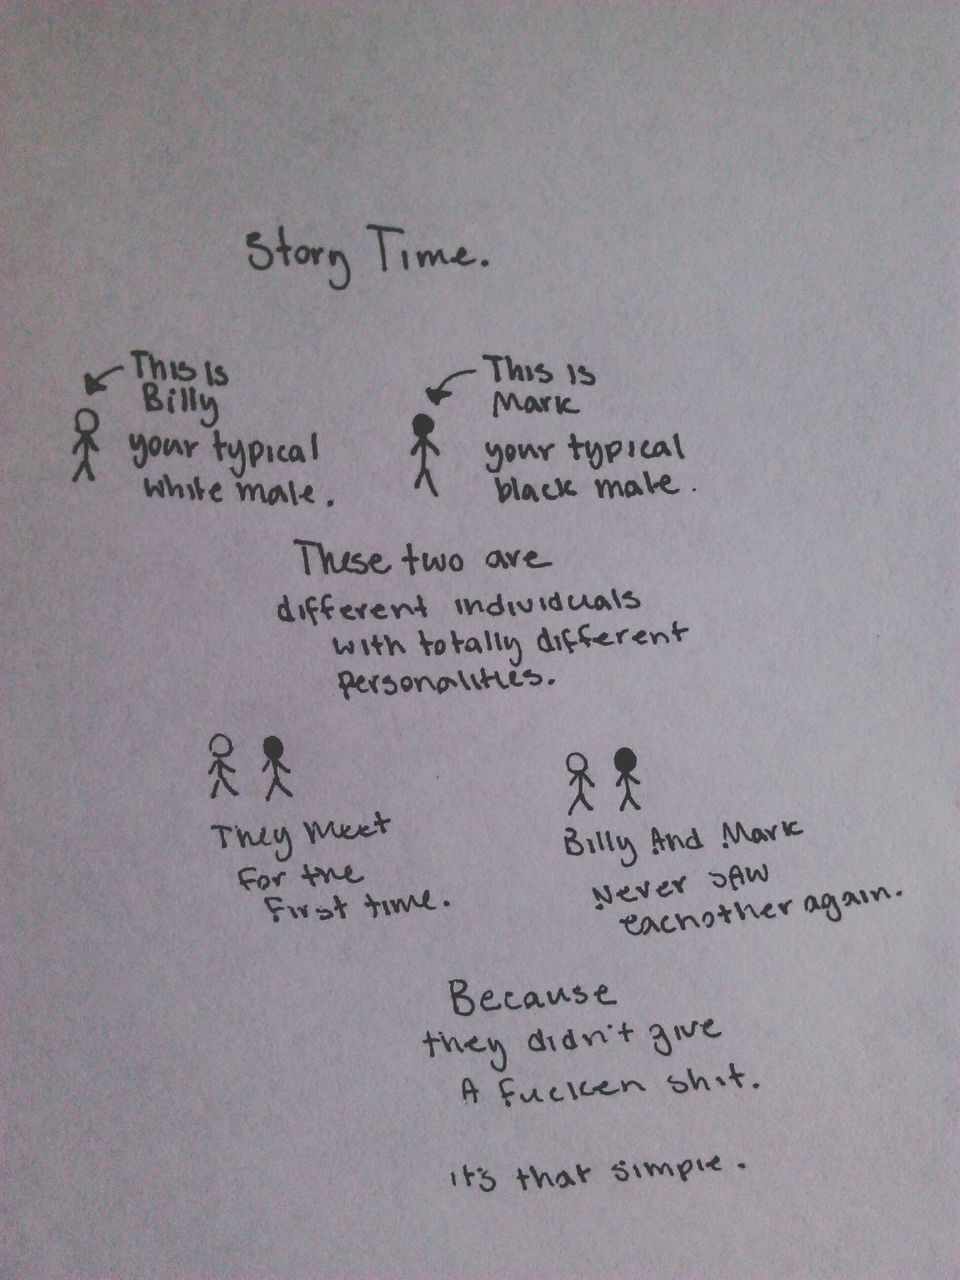 Story Time.
This is
Billy
your typical
white male.
This is
Mark
your typical
black male.
These two are
different individuals
with totally different
personalities.
They Meet
For the
First time.
Billy And Mark
Never SAW
eachother again.
Because
they didn't give
A fucken shit.
it's that simple.